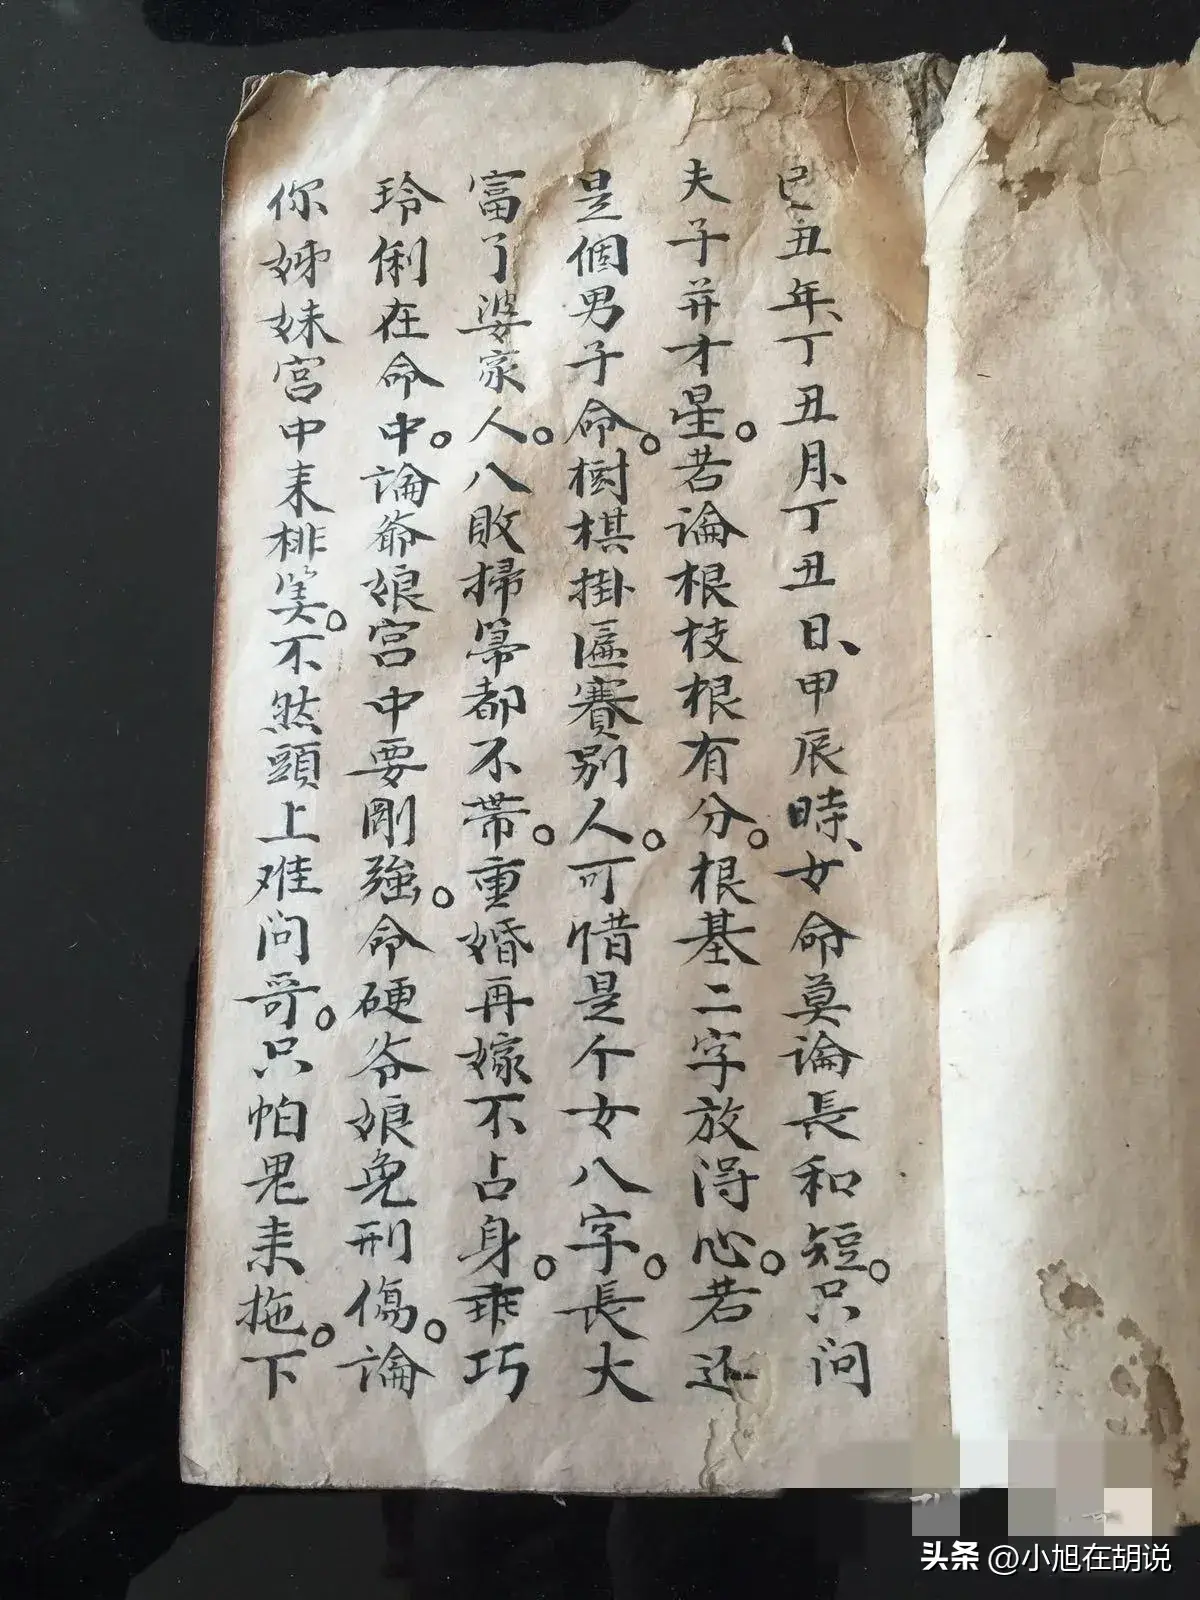 己丑年、丁丑月、丁丑日、甲辰時、女命莫論長和短。只问
夫子并才星。若論根枝根有分。根基二字放得心。若还
是個男子命。樹棋掛匾賽別人。可惜是个女八字。長大
富了婆家人。八敗掃箒都不帶。重婚再嫁不占身。乖巧
玲俐在命中。論爺娘宮中要剛強。命硬爷娘免刑傷。論
你姊妹宮中来排筭。不然頭上难问哥。只怕鬼来拖。下
头条 @小旭在胡说